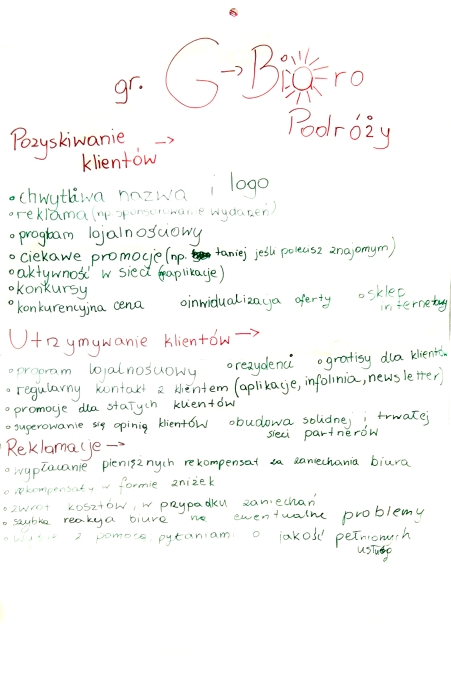 gr. G → Biuro
Podróży
Pozyskiwanie →
klientów
• chwytliwa nazwa i logo
• reklama (np. sponsorowanie wydarzeń)
• program lojalnościowy
• ciekawe promocje (np. taniej jeśli polecisz znajomym)
• aktywność w sieci (aplikacje)
• konkursy
• konkurencyjna cena • inwidualizacja oferty • sklep internetowy
Utrzymywanie klientów →
• program lojalnościowy • rezydenci • gratisy dla klientów
• regularny kontakt z klientem (aplikacje, infolinia, newsletter)
• promocje dla stałych klientów
• sugerowanie się opinią klientów • budowa solidnej i trwałej
sieci partnerów
Reklamacje →
• wypłacanie pieniężnych rekompensat za zaniechania biura
• rekompensaty w formie zniżek
• zwrot kosztów, w przypadku zaniechań
• szybka reakcja biura na ewentualne problemy
• z pomocą pytaniami o jakość pełnionych
usług